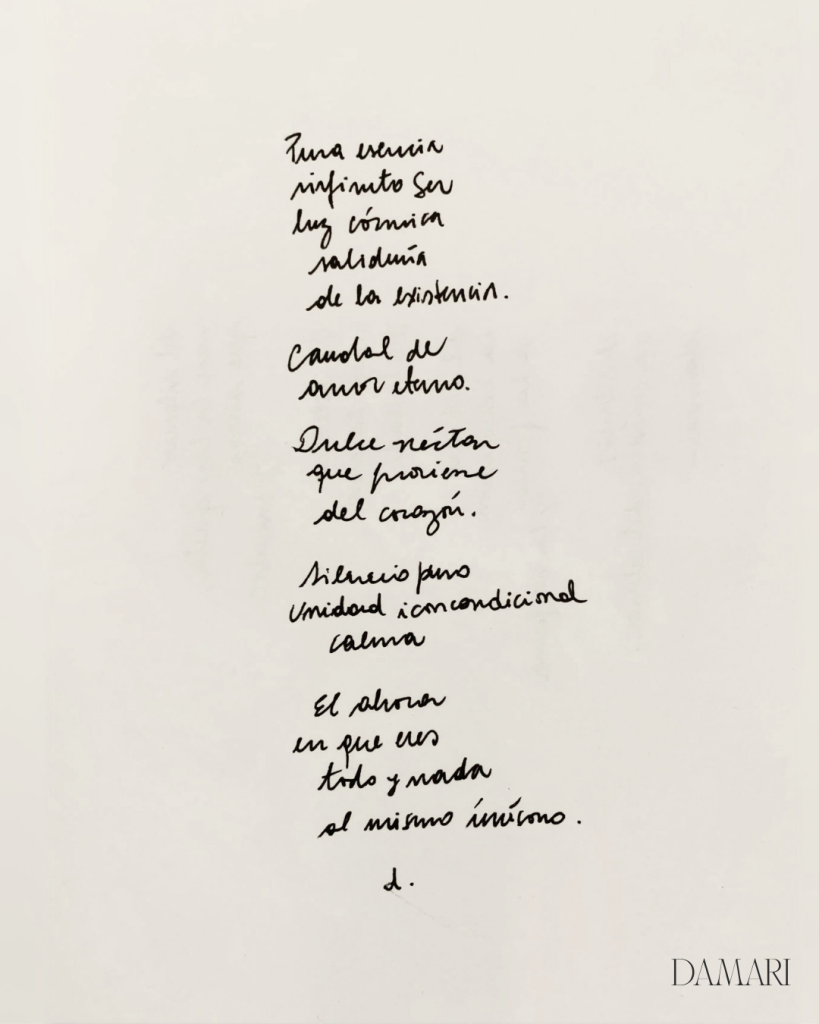 Pura esencia
infinito Ser
luz cósmica
sabiduría
de la existencia.
Caudal de
amor eterno.
Dulce néctar
que proviene
del corazón.
Silencio puro
Unidad iconcondicional
calma
El ahora
en que eres
todo y nada
al mismo
d.
DAMARI